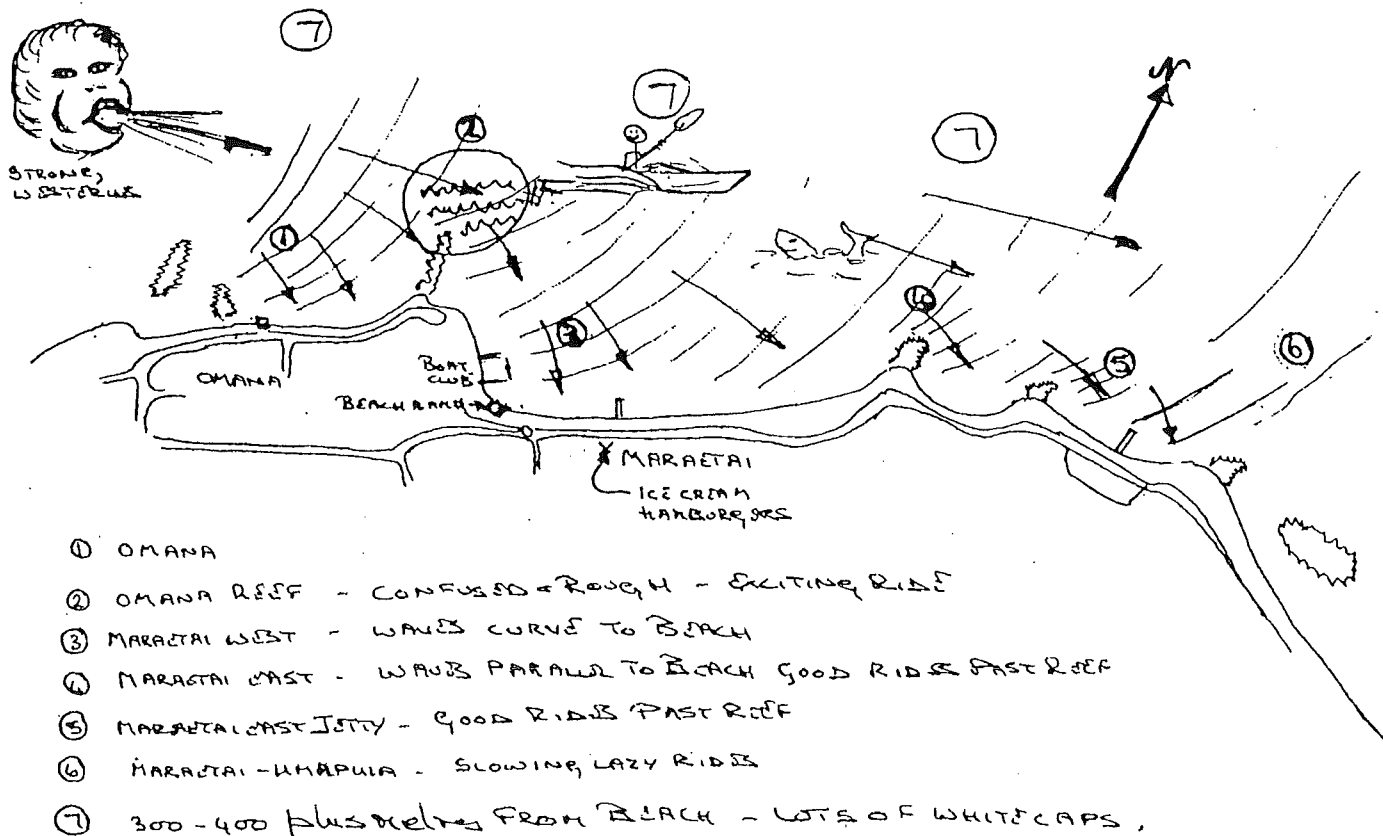 7
7
7
N
STRONG
WESTERLIES
2
1
3
4
5
6
OMANA
BOAT
CLUB
BEACH RAMP
MARAETAI
ICE CREAM
HAMBURGERS
① OMANA
② OMANA REEF - CONFUSED & ROUGH - EXCITING RIDE
③ MARAETAI WEST - WAVES CURVE TO BEACH
④ MARAETAI EAST - WAVES PARALLEL TO BEACH GOOD RIDES PAST REEF
⑤ MARAETAI EAST JETTY - GOOD RIDES PAST REEF
⑥ MARAETAI - UMAPUIA - SLOWING LAZY RIDES
⑦ 300-400 plus metres FROM BEACH - LOTS OF WHITECAPS.